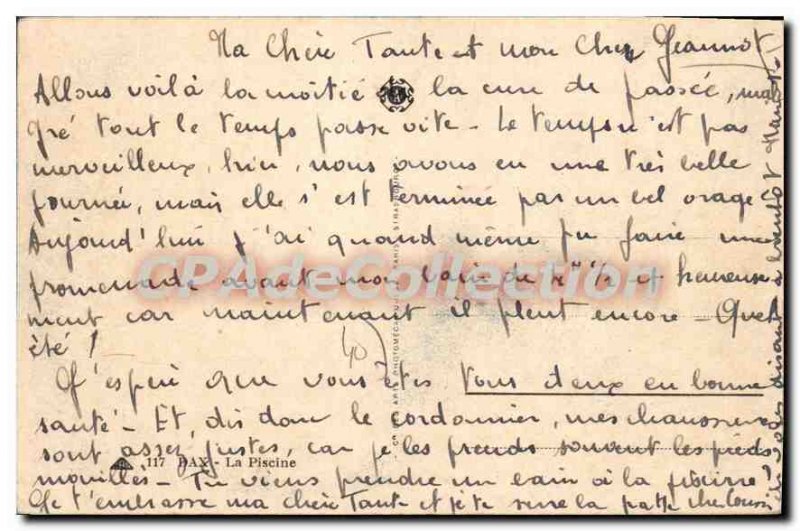 Ma Chère Tante et mon Cher Jeannot
Allons voilà la moitié la cure de passée, mal
gré tout le temps passe vite - Le temps n'est pas
merveilleux, hier, nous avons eu une très belle
journée, mais elle s'est terminée par un bel orage
Aujourd'hui j'ai quand même pu faire une
promenade avant mon bain de et heureuse
ment car maintenant il pleut encore - Quel
été !
40
J'espère que vous êtes tous deux en bonne
santé - Et, dis donc le cordonnier, mes chaussures
sont assez justes, car je les prends souvent les pieds
117 DAX - La Piscine
mouillés - Tu viens prendre un bain à la piscine ?
Je t'embrasse ma chère Tante et je te serre la patte cher Cousin
en disant à bientôt
CPAdeCollection